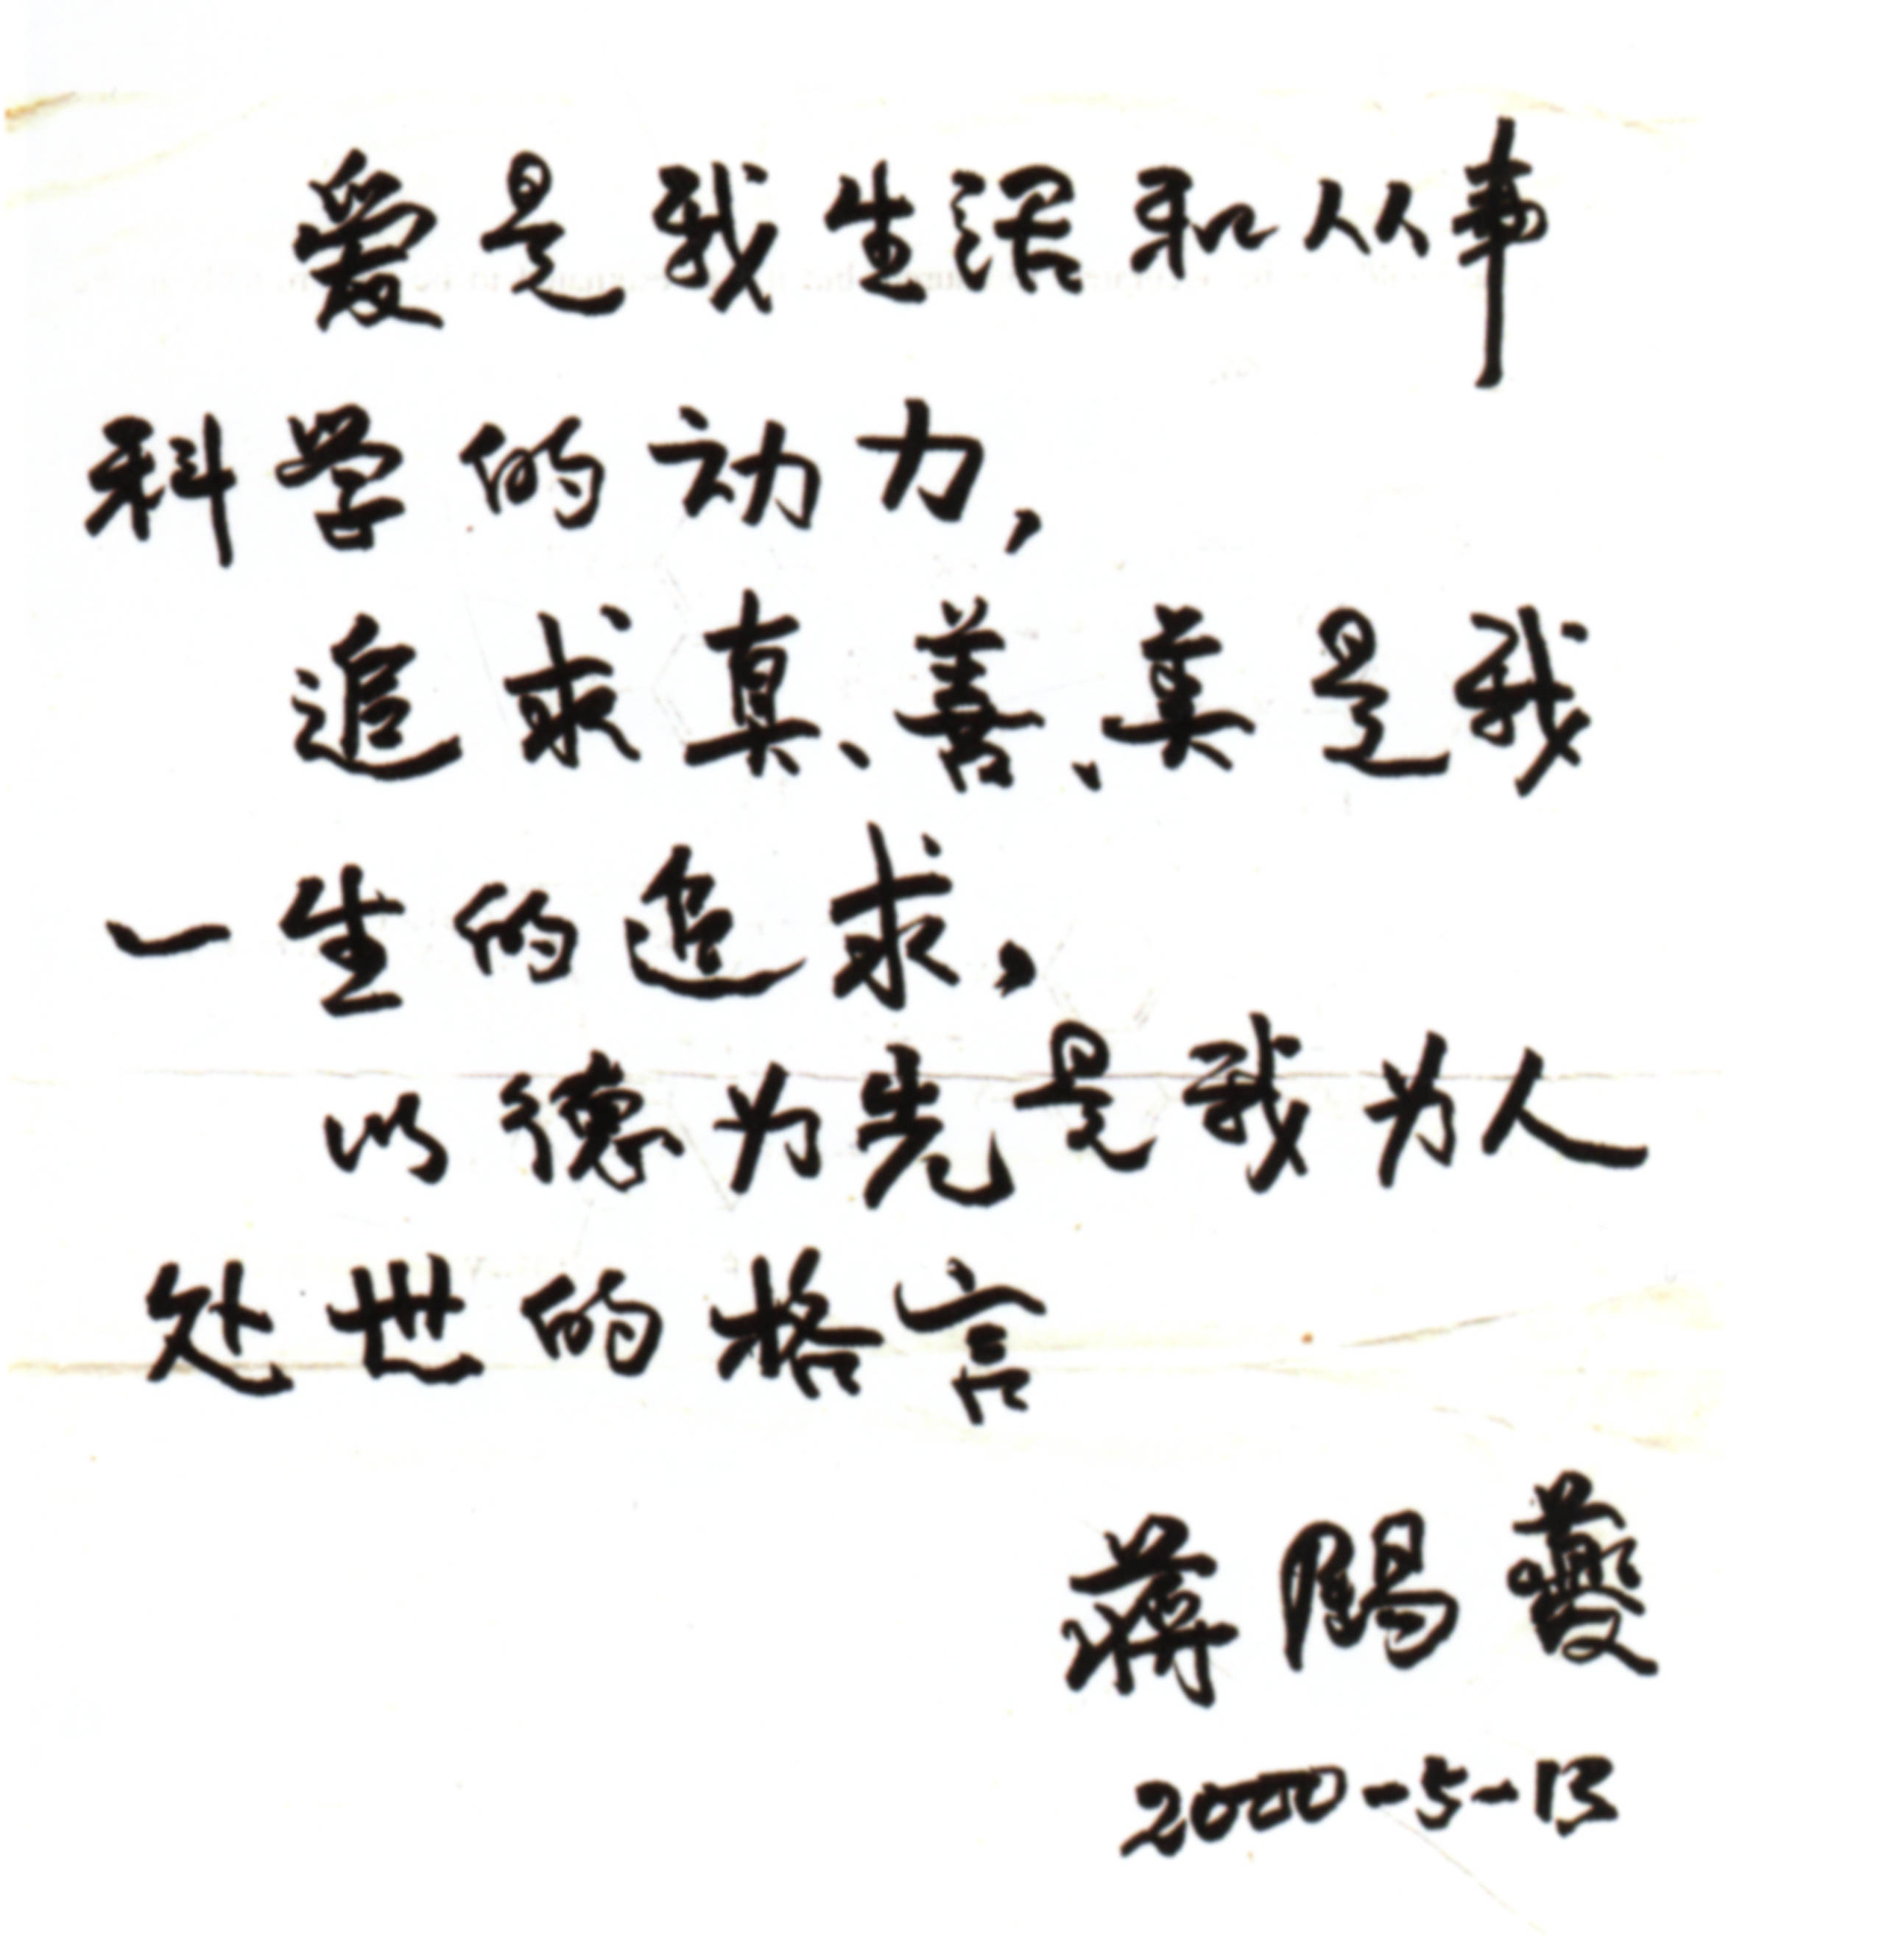 爱是我生活和从事
科学的动力,
追求真、善、美是我
一生的追求,
以德为先是我为人
处世的格言
蒋锡夔
2000-5-13